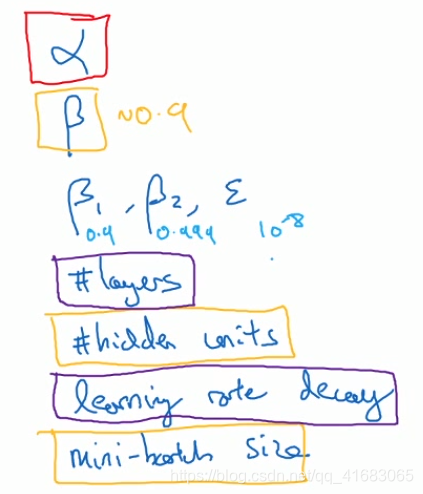 α
β ~0.9
β₁, β₂, ε
0.9 0.999 10⁻⁸
#layers
#hidden units
learning rate decay
mini-batch size
https://blog.csdn.net/qq_41683065